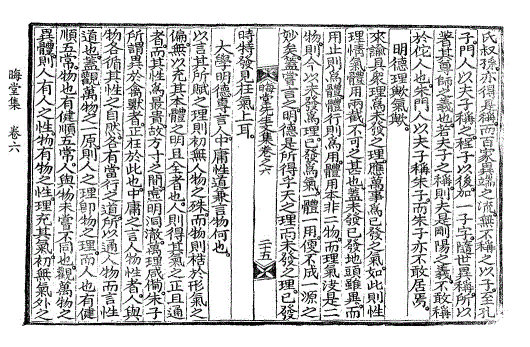 氏叔孫亦得爲稱而百家異端之流無不稱之以子至孔
子門人以夫子稱之程子以後加一子字隨世異稱所以
著其尊師之義也若夫子之稱則尤是剛陽之義不敢稱
於佗人也朱門人以夫子稱朱子而朱子亦不敢居焉
明德理歟氣歟
來諭具衆理爲未發之理應萬事爲已發之氣如此則性
理情氣體用兩截不可之甚也蓋未發已發地頭雖異而
用止則爲體體行則爲用體用本非二物而理氣決是二
物則今以未發爲理已發爲氣一體一用便不成一源之
妙矣蓋嘗言之明德是所得乎天之理而未發之理已發
晦堂先生文集卷之六
二十五
時特發見在氣上耳
大學明德專言人中庸性道兼言物何也
以言其所賦之理則初無人物之殊而物則梏於形氣之
偏無以充其本體之明且全者也人則得其氣之正且通
者而其性爲最貴故方寸之間虛明洞澈萬理咸備朱子
所謂異於禽獸者正在於此也中庸之言人物性者人與
物各循其性之自然各有當行之道所以通人物而言性
道也蓋觀萬物之一原則人之理卽物之理而人也有健
順五常物也有健順五常人與物未嘗不同也觀萬物之
異體則人有人之性物有物之性理充其氣初無氣外之
晦堂集 卷六